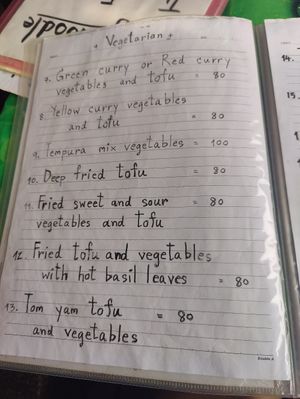 + Vegetarian +
7. Green curry or Red curry
vegetables and tofu = 80
8. Yellow curry vegetables
and tofu = 80
9. Tempura mix vegetables = 100
10. Deep fried tofu = 80
11. Fried sweet and sour = 80
vegetables and tofu
12. Fried tofu and vegetables
with hot basil leaves = 80
13. Tom yam tofu = 80
and vegetables
Double A
14.
15.